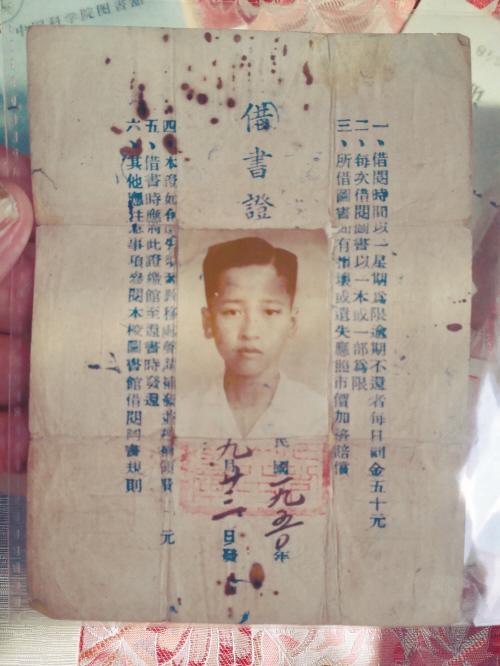 中国科学院图书馆
一、借閱時間以一星期爲限逾期不還者每日罰金五十元
二、每次借閱圖書以一本或一部爲限
三、所借圖書如有損壞或遺失應照市價加倍賠償
借書證
民國一九五〇年
九月廿二日發
四、本證如有聲請補發元
五、借書時應將此證繳館至還書時發還
六、其他應注意事項參閱本校圖書館借閱圖書規則